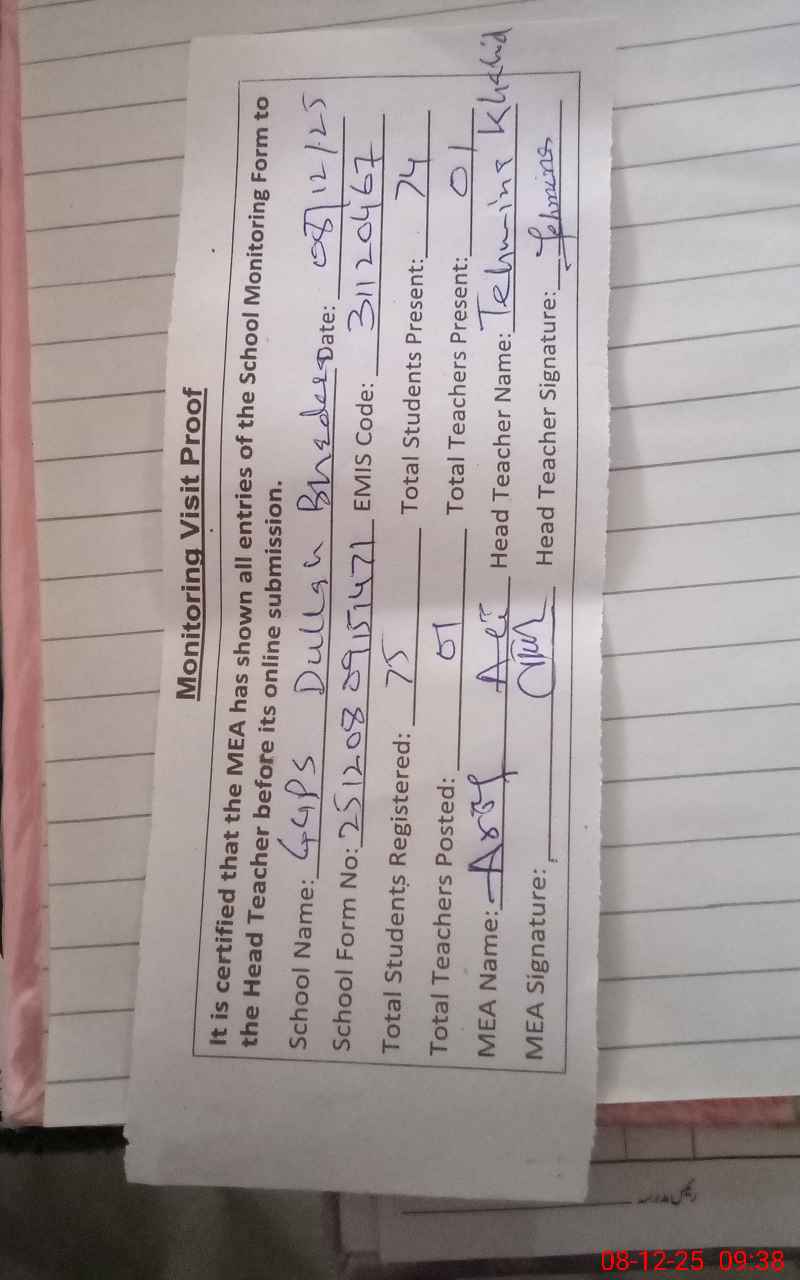 Monitoring Visit Proof
It is certified that the MEA has shown all entries of the School Monitoring Form to
the Head Teacher before its online submission.
School Name: GGPS Dullah Bhadera Date: 08/12/25
School Form No: 251208 09151471 EMIS Code: 31120467
Total Students Registered: 75 Total Students Present: 74
Total Teachers Posted: 01 Total Teachers Present: 01
MEA Name: Arif Ali Head Teacher Name: Tehmina Khalid
MEA Signature: Head Teacher Signature: Tehmina
08-12-25 09:38